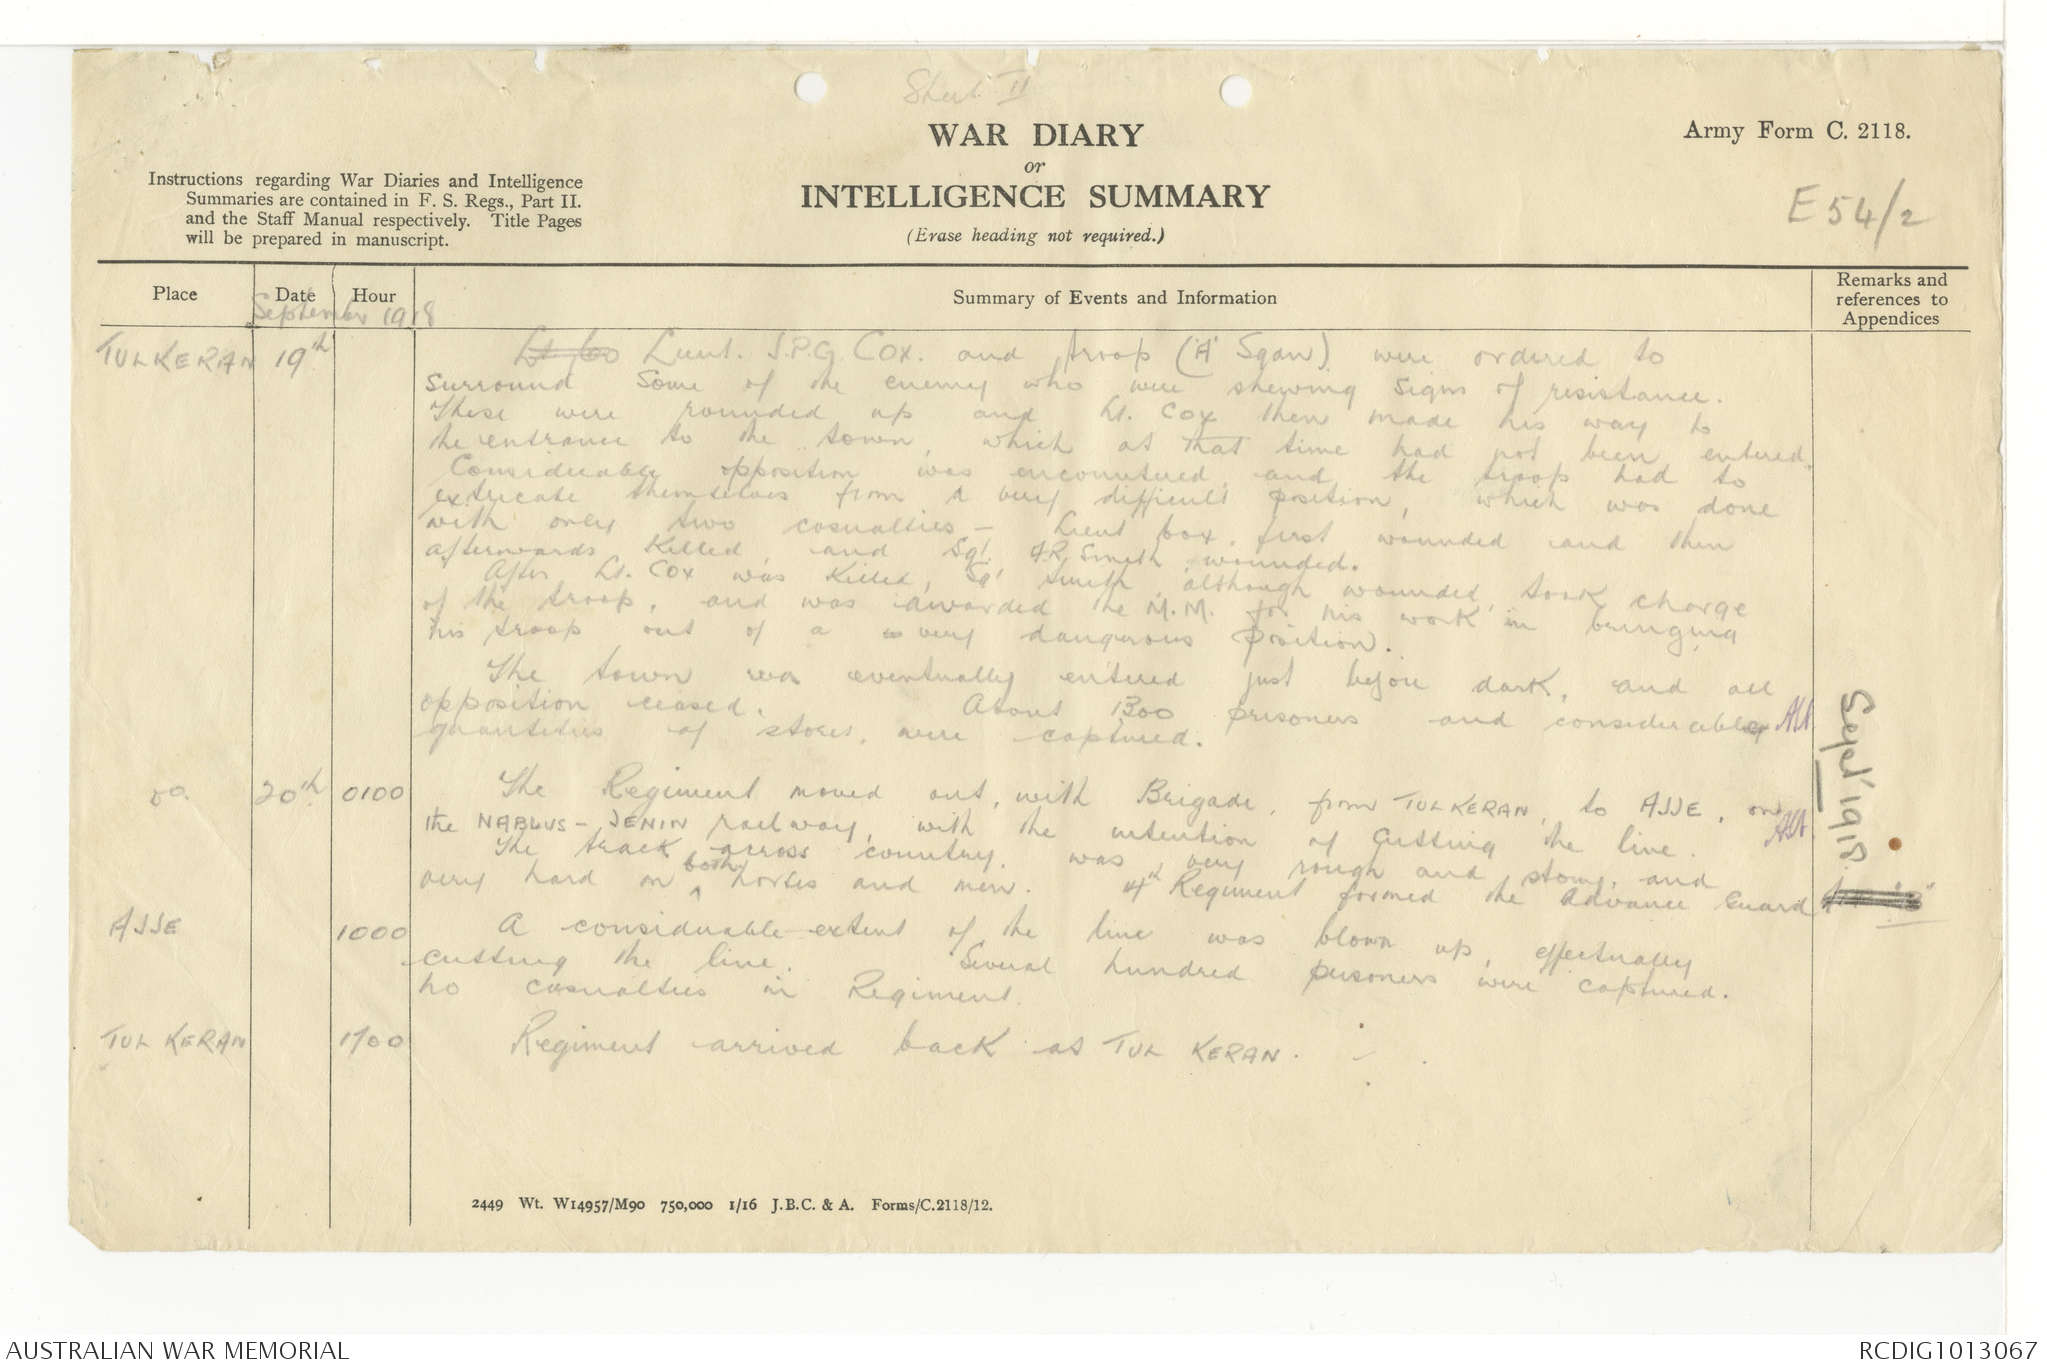 Sheet II
WAR DIARY
or
INTELLIGENCE SUMMARY
(Erase heading not required.)
Army Form C. 2118.
Instructions regarding War Diaries and Intelligence
Summaries are contained in F. S. Regs., Part II.
and the Staff Manual respectively. Title Pages
will be prepared in manuscript.
E 54/2
Place Date Hour Summary of Events and Information Remarks and references to Appendices
September 1918
TULKERAN 19th Lieut. J.P.G. Cox. and troop ('A' Sqdn) were ordered to
surround some of the enemy who were shewing signs of resistance.
These were rounded up and Lt. Cox then made his way to
the entrance to the town, which at that time had not been entered.
Considerable opposition was encountered and the troop had to
extricate themselves from a very difficult position, which was done
with only two casualties - Lieut Cox, first wounded and then
afterwards killed, and Sgt. F.R. Smith wounded.
After Lt. Cox was killed, Sgt Smith, although wounded, took charge
of the troop, and was awarded the M.M. for his work in bringing
his troop out of a very dangerous position.
The town was eventually entered just before dark, and all
opposition ceased. About 1300 prisoners and considerable
quantities of stores, were captured.
do. 20th 0100 The Regiment moved out, with Brigade, from TULKERAN, to AJJE, on
the NABLUS - JENIN railway, with the intention of cutting the line.
The track across country was very rough and stony, and
very hard on both horses and men. 4th Regiment formed the Advance Guard
AJJE 1000 A considerable extent of the line was blown up, effectually
cutting the line. Several hundred prisoners were captured.
No casualties in Regiment.
TUL KERAN 1700 Regiment arrived back at TUL KERAN.
Sept 1918
2449 Wt. W14957/M90 750,000 1/16 J.B.C. & A. Forms/C.2118/12.
AUSTRALIAN WAR MEMORIAL
RCDIG1013067